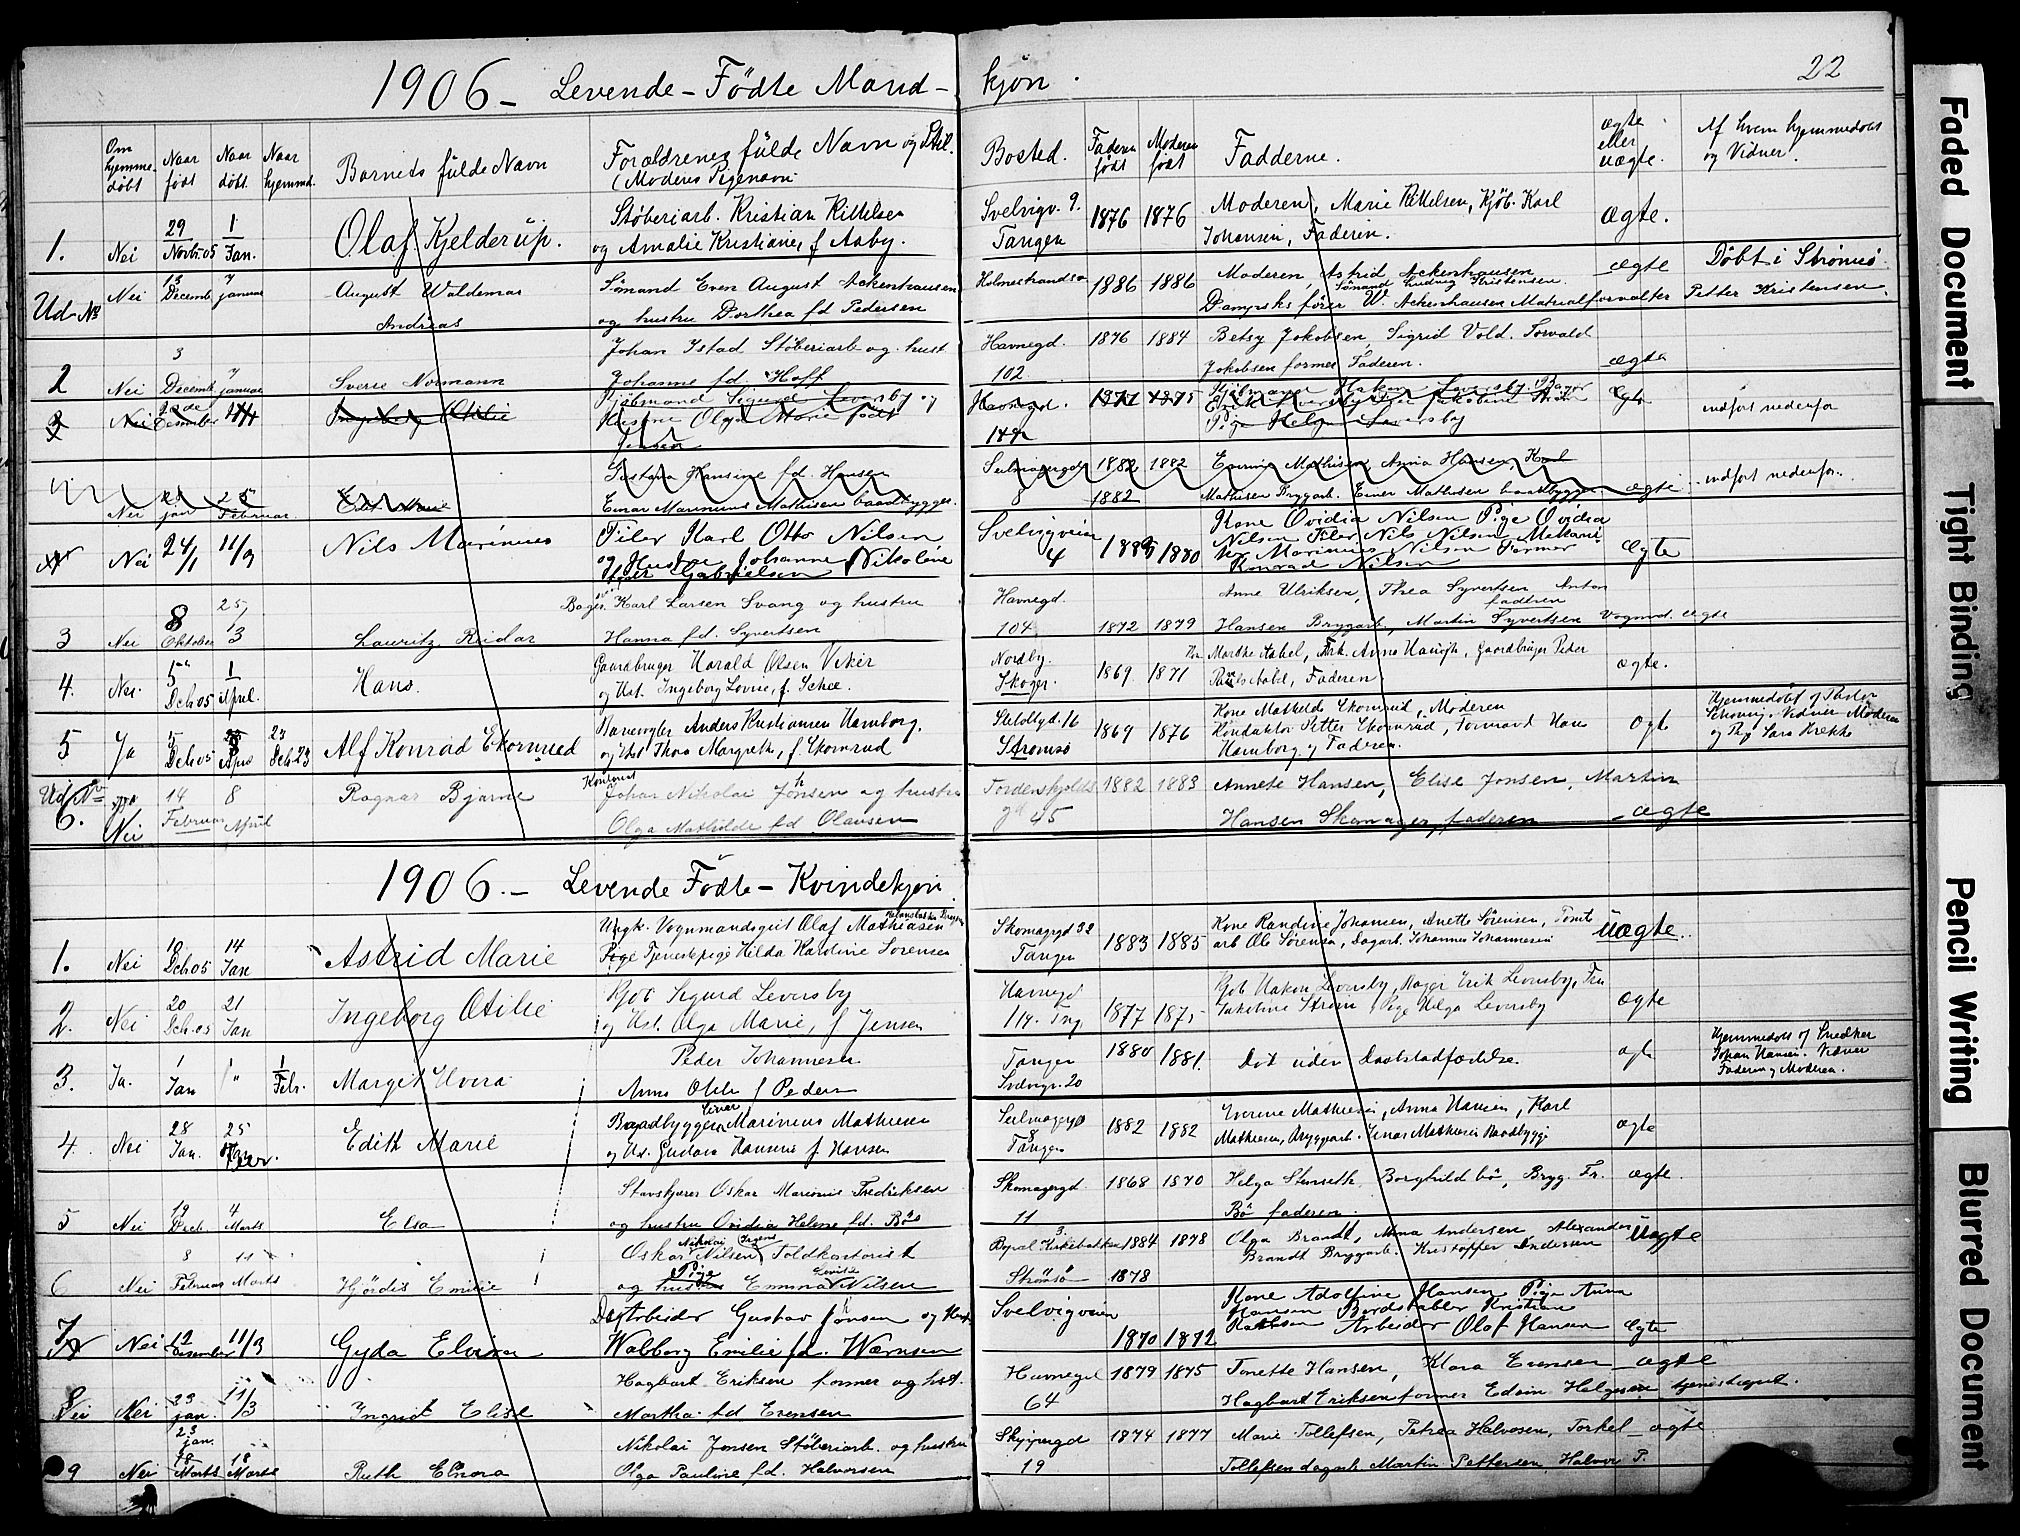 1906 – Levende – Födte Mand – kjön.
22
Om hjemme-döbt
Naar födt
Naar döbt.
Naar hjemmd.
Barnets fulde Navn
Forældrenes fulde Navn og Stil.
(Moderes Pigenavn
Bosted.
Faderen födt
Moderen födt
Fadderne.
ægte eller uægte.
Af hvem hjemmedöbt og Vidner.
1. Nei 29 Novbr.05 1 Jan. Olaf Kjelderup. Støberiarb. Kristian Kittelsen
og Amalie Kristiane, f Aaby. Svelvigv. 9. Tangen 1876 1876 Moderen, Marie Kittelsen, Kjöb. Karl
Johansen, Faderen. Ægte.
Ud No Nei 13 Decemb. 7 januar August Waldemar
Andreas
Sömand Even August Ackenhausen
og hustru Dorthea fd Pedersen
Holmestrandsv 1886 1886 Moderen, Astrid Ackenhausen
Sömand Ludvig Kristensen.
Dampsksförer W. Ackenhausen Materialforvalter Petter Kristensen.
ægte Döbt i Strömsö
2 Nei 3 Decemb. 7 januar Sverre Normann
Johan Istad Støberiarb og hust
Johanne fd. Hoff
Havnegd. 102 1876 1884 Betsy Jakobsen, Sigrid Vold. Torvald
Jakobsen former Faderen. ægte
3 Nei Desember Ingeborg Otilie
Kjöbmand Sigurd Leversby og
Hustru Olga Marie födt
Jensen
Havnegd. 1877 1875 Kjöbmand Hakon Leversby. Bager
Pige Helga Leversby
Ægte indfört nedenfor
Nei jan 25 Februar. Edit Marie
Gustava Hansine fd. Hansen
Einar Marinius Mathisen baadbygger.
Seilmagergd 8 1882 1882 1882 Mathisen Anna Hansen, Karl
Mathisen Bryggarb. Einar Mathisen baadbygger. ægte indfört nedenfor.
Nei 24/1 11/3 Nils Marinius
Filer Karl Otto Nilsen
og Hustru Johanne Nikoline
Gabrielsen
Svelvigveien 4 1880 Kone Ovidia Nilsen Pige Ovidia
Nilsen Filer Nils Nilsen Mekani
ker Marinius Nilsen Former
Konrad Nilsen Ægte
3 Nei 8 Oktober 25/3 Lauritz Reidar
Bager Karl Larsen Svang og hustru
Hanna fd. Syvertsen
Havnegd. 104 1872 1879 Anne Ulriksen, Thea Syvertsen Anton
faderen
Hansen Brygarb., Martin Syvertsen Vognmd. ægte
4. Nei. 5 Dcb 05 1 April. Hans.
Gaardbruger Harald Olsen Viker
og Hst. Ingeborg Lovise, f. Schee.
Nordby. Skoger. 1869. 1871 Marthe Aabel, Frk. Anna Haugh, Gaardbruger Peder
Aabel, Faderen. ægte.
5 Ja 5 Dcb 05 April 23 Dcb Alf Konrad Ekornrud
Anders Kristiansen Hamborg.
og Hst Thea Margrethe, f. Ekornrud
16 Strömsö 1869 1876 Kone Mathilde Ekornrud, Moderen
Konduktör Petter Ekornrud, Hans
Hamborg og Faderen. ægte
Hjemmedöbt af Pastor
Vidner Moderen
Ud No 6. Nei 14 Februar 8 April Ragnar Bjarne
Kontorist
Johan Nikolai Johnsen og hustru
Olga Mathilde fd Olausen
Tordenskjolds gd 45 1882 1883 Annete Hansen, Elise Jonsen, Martin
Hansen Skomager, faderen ægte
1906. – Levende Födte – Kvindekjön.
1. Nei 10 Dcb 05 14 Jan Astrid Marie
Ungk. Vognmandsgut Olaf Mathiasen
Pige Tjenestepige Hilda Kardine Sörensen
Skomagrgd 32 Tangen 1883 1885 Kone Randine Johansen, Anette Sörensen, Tomt
arb Ole Sörensen, Dagarb. Johannes Johannesen Uægte.
2. Nei 20 Dcb. 05 21 Jan Ingeborg Otilie
Kjöb Sigurd Leversby
og Hst. Olga Marie, f Jensen
Havnegd 114. Tng. 1877 1875 Kjöb Hakon Leversby, Bager Erik Leversby, Fru
Jakobine Ström, Pige Helga Leversby ægte
3. Ja. 1 Jan " 1 Febr. Margit
Peder Johannesen
Anna Otilie f Peders
Tangen Svelvigv. 20 1880 1881. Död uden Daabstadfæstelse. ægte
Hjemmedöbt af Snedker
Johan Hansen. Vidner
Faderen og Moderen.
4. Nei 28 Jan. 25 Febr. Edith Marie
Baadbygger Einar Marinius Mathisen
og Hst. Gustava Hansine f. Hansen
Seilmagergd 8 Tangen 1882 1882 Mathisen, Anna Hansen, Karl
Mathisen, Bryggarb. Einar Mathisen Baadbygg. ægte
5 Nei 19 Decb. 4 Marts Elsa
Oskar Marinius Fredriksen
og hustru Ovidia Helene fd. Bö
Skomagergd. 11 1868 1870 Helga Stenseth, Borghild bö, Bryg. Fr.
Bö faderen. ægte.
6 Nei 8 Februar 11 Marts Hjördis Emilie
Oskar Nikolai Nilsen Toldkontorist
og Pige Emma Nilsen
Kirkebakken 3. Strömsö 1884 1878 1878 Olga Brandt, Anna Andersen Alexander
Brandt Bryggarb. Kristoffer Andersen Uægte
7 Nei 12 Desember 11/3 Gyda Elvira
Arbeider Gustav Jonsen og Hust.
Walborg Emilie fd. Wærnsen
Svelvigveien 1870 1872 Kone Adolfine Hansen Pige Anna
Hansen Bordstabler Kristian
Arbeider Olaf Hansen Ægte
8 Nei 23 jan. 11/3 Ingrid Elise
Hagbart Eriksen former og hst.
Martha fd Evensen
Havnegd 64 1879 1875 Tonette Hansen, Klara Evensen ægte
Hagbart Eriksen former Edvin Helgesen tjenestegut.
9 Nei 18 Marts 18 Marts Ruth Elnora
Nikolai Jonsen Støberiarb. og hustru
Olga Pauline fd. Halvorsen
Skippergd 19 1874 1877 Marie Tollefsen, Petrea Halvorsen, Torkel ægte.
Tollefsen dagarb. Martin Pettersen, Halvor P.
Faded Document
Tight Binding
Pencil Writing
Blurred Document